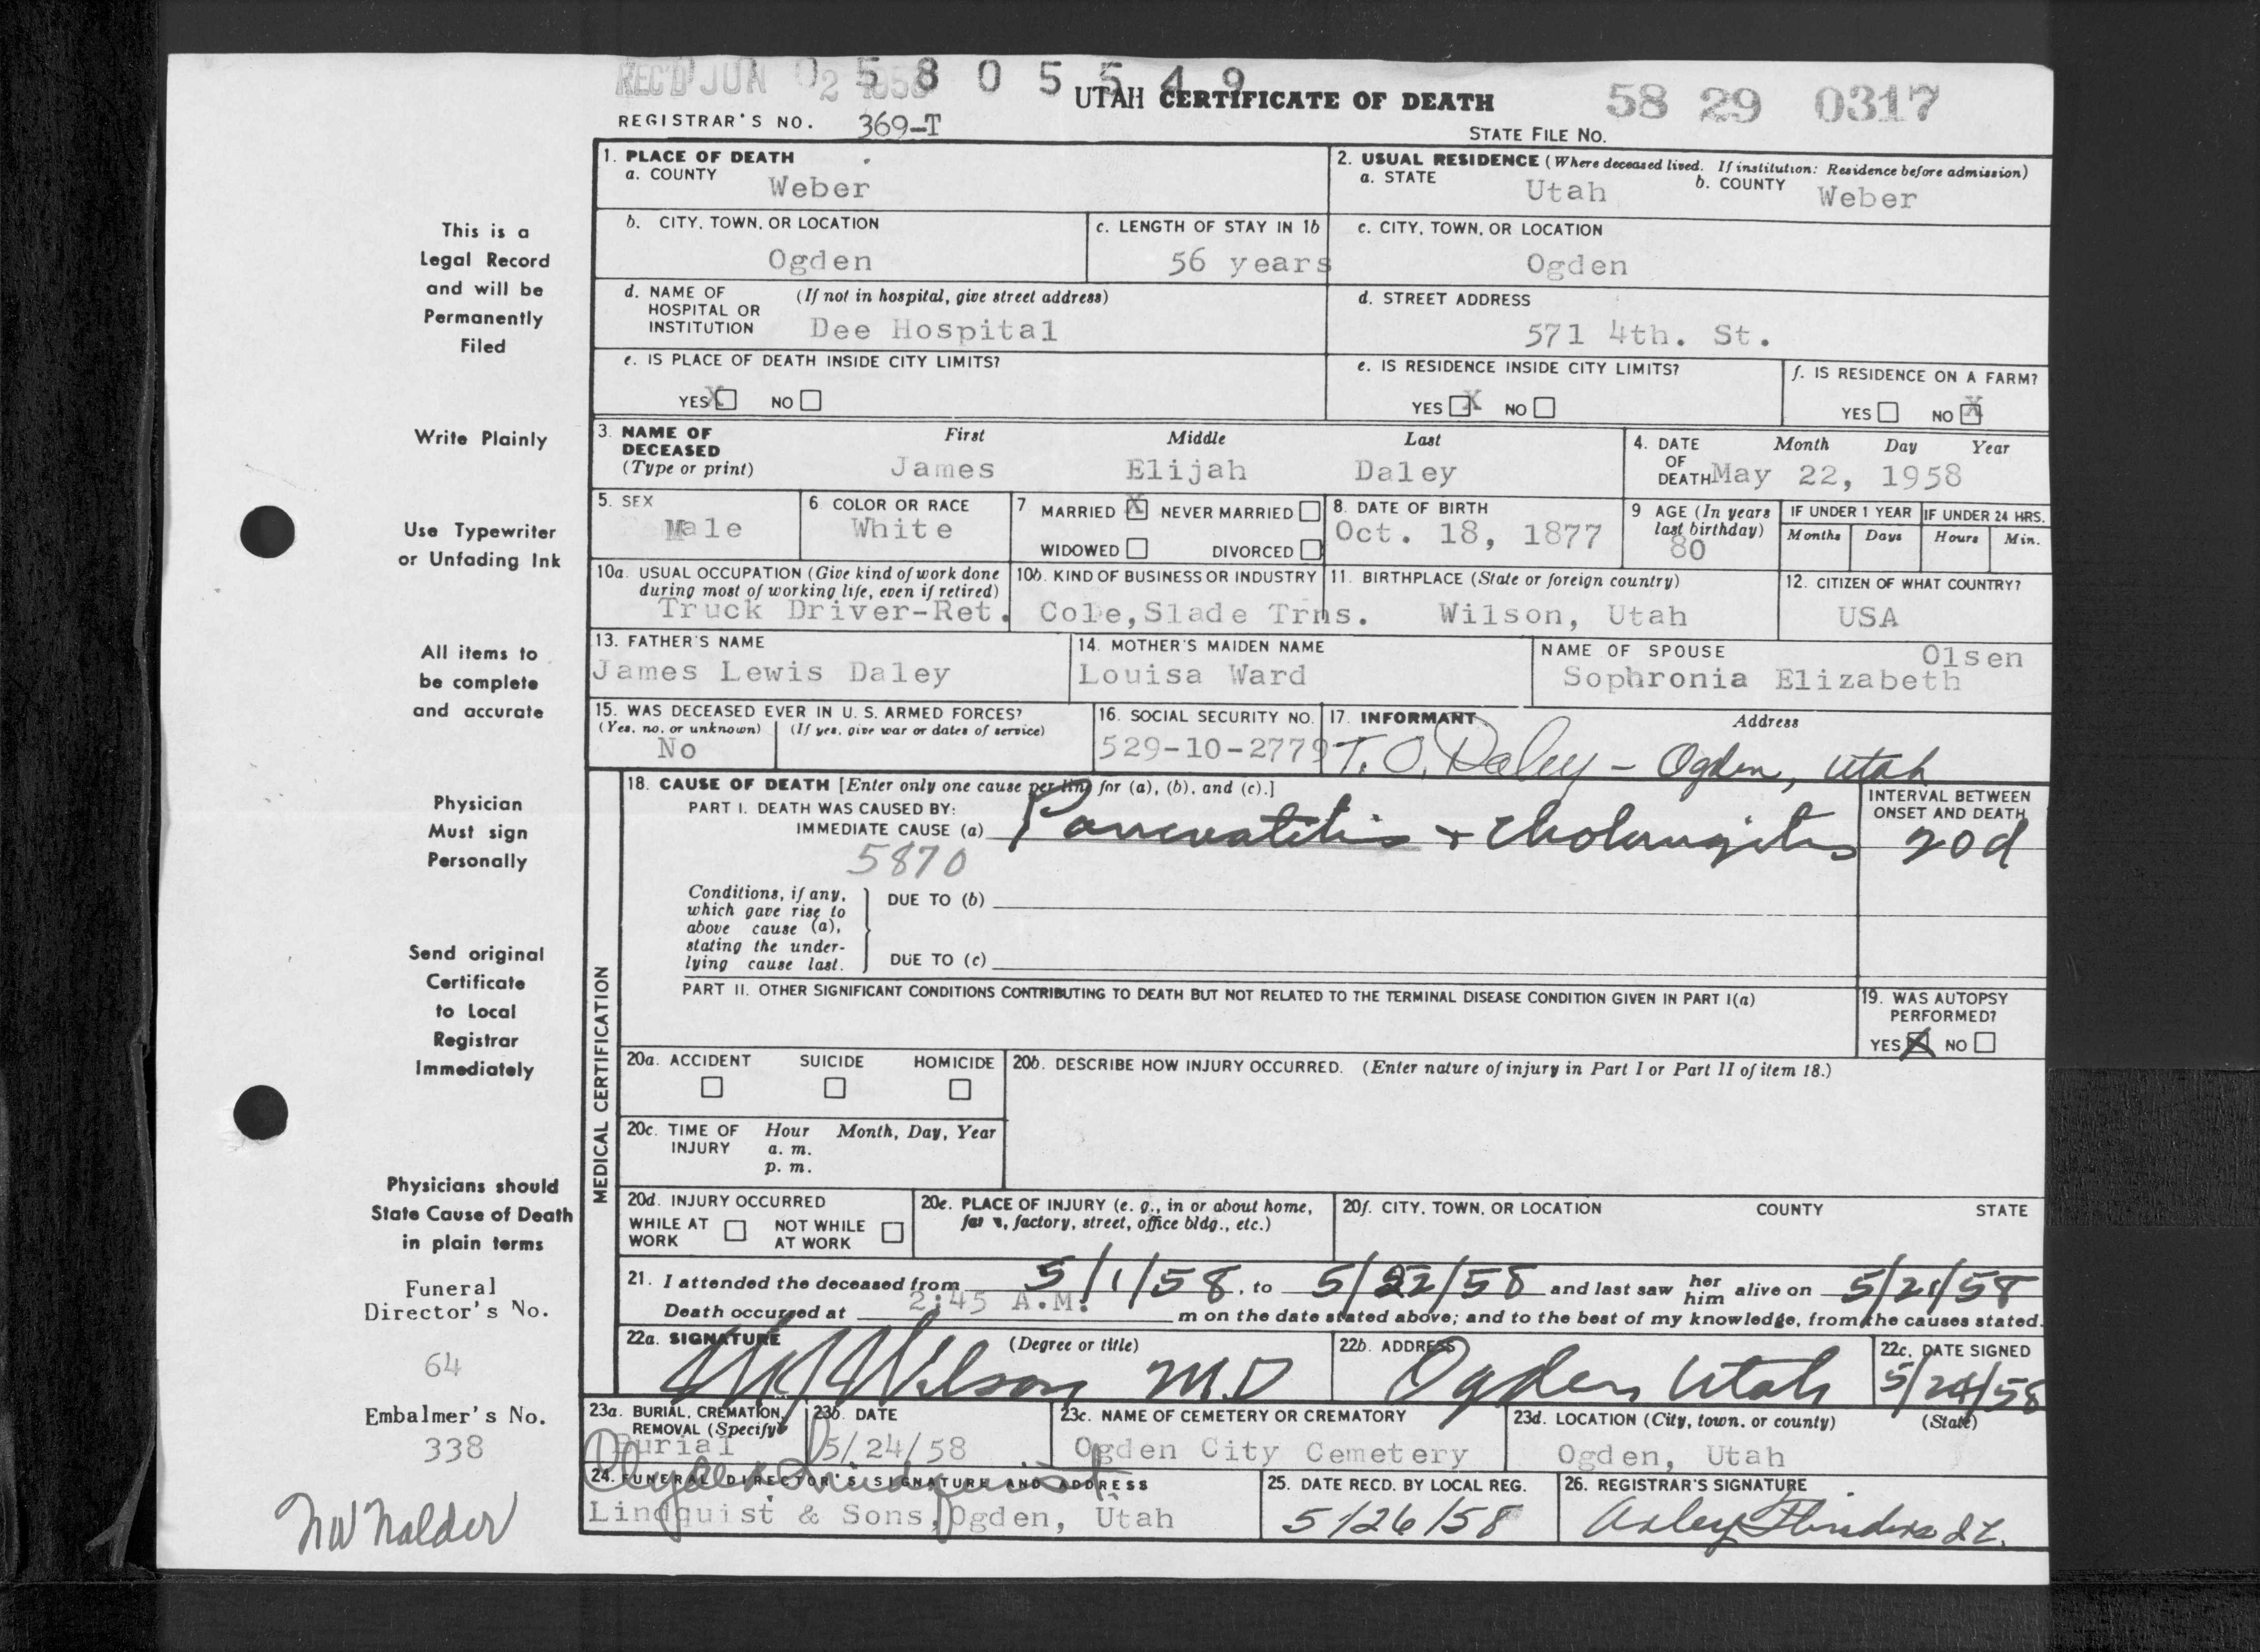 REC'D JUN 2 1958
0 5 8 0 5 5 4 9
UTAH CERTIFICATE OF DEATH
58 29 0317
REGISTRAR'S NO. 369-T
STATE FILE NO.
1. PLACE OF DEATH
a. COUNTY Weber
2. USUAL RESIDENCE (Where deceased lived. If institution: Residence before admission)
a. STATE Utah b. COUNTY Weber
b. CITY, TOWN, OR LOCATION Ogden
c. LENGTH OF STAY IN 1b 56 years
c. CITY, TOWN, OR LOCATION Ogden
d. NAME OF HOSPITAL OR INSTITUTION (If not in hospital, give street address) Dee Hospital
d. STREET ADDRESS 571 4th. St.
e. IS PLACE OF DEATH INSIDE CITY LIMITS?
YES X NO
e. IS RESIDENCE INSIDE CITY LIMITS?
YES X NO
f. IS RESIDENCE ON A FARM?
YES NO X
3. NAME OF DECEASED (Type or print)
First Middle Last
James Elijah Daley
4. DATE OF DEATH Month Day Year
May 22, 1958
5. SEX Male
6 COLOR OR RACE White
7 MARRIED X NEVER MARRIED
WIDOWED DIVORCED
8. DATE OF BIRTH Oct. 18, 1877
9 AGE (In years last birthday) 80
IF UNDER 1 YEAR Months Days
IF UNDER 24 HRS. Hours Min.
10a. USUAL OCCUPATION (Give kind of work done during most of working life, even if retired)
Truck Driver-Ret.
10b. KIND OF BUSINESS OR INDUSTRY
Cole, Slade Trns.
11. BIRTHPLACE (State or foreign country)
Wilson, Utah
12. CITIZEN OF WHAT COUNTRY?
USA
13. FATHER'S NAME
James Lewis Daley
14. MOTHER'S MAIDEN NAME
Louisa Ward
NAME OF SPOUSE Olsen
Sophronia Elizabeth
15. WAS DECEASED EVER IN U. S. ARMED FORCES?
(Yes, no, or unknown) (If yes, give war or dates of service)
No
16. SOCIAL SECURITY NO.
529-10-2779
17. INFORMANT Address
T. O. Daley - Ogden, Utah
MEDICAL CERTIFICATION
18. CAUSE OF DEATH [Enter only one cause per line for (a), (b), and (c).]
PART I. DEATH WAS CAUSED BY:
IMMEDIATE CAUSE (a) Pancreatitis + Cholangitis
INTERVAL BETWEEN ONSET AND DEATH
20d
5870
Conditions, if any, which gave rise to above cause (a), stating the underlying cause last.
DUE TO (b)
DUE TO (c)
PART II. OTHER SIGNIFICANT CONDITIONS CONTRIBUTING TO DEATH BUT NOT RELATED TO THE TERMINAL DISEASE CONDITION GIVEN IN PART I(a)
19. WAS AUTOPSY PERFORMED?
YES X NO
20a. ACCIDENT SUICIDE HOMICIDE
20b. DESCRIBE HOW INJURY OCCURRED. (Enter nature of injury in Part I or Part II of item 18.)
20c. TIME OF INJURY Hour Month, Day, Year
a. m.
p. m.
20d. INJURY OCCURRED
WHILE AT WORK NOT WHILE AT WORK
20e. PLACE OF INJURY (e. g., in or about home, farm, factory, street, office bldg., etc.)
20f. CITY, TOWN, OR LOCATION COUNTY STATE
21. I attended the deceased from 5/1/58, to 5/22/58 and last saw her him alive on 5/21/58
Death occurred at 2:45 A.M. m on the date stated above; and to the best of my knowledge, from the causes stated.
22a. SIGNATURE (Degree or title)
Wilson M.D
22b. ADDRESS
Ogden Utah
22c. DATE SIGNED
5/24/58
23a. BURIAL, CREMATION, REMOVAL (Specify)
Burial
23b. DATE
5/24/58
23c. NAME OF CEMETERY OR CREMATORY
Ogden City Cemetery
23d. LOCATION (City, town, or county) (State)
Ogden, Utah
24. FUNERAL DIRECTOR'S SIGNATURE AND ADDRESS
Lindquist
Lindquist & Sons, Ogden, Utah
25. DATE RECD. BY LOCAL REG.
5/26/58
26. REGISTRAR'S SIGNATURE
This is a
Legal Record
and will be
Permanently
Filed
Write Plainly
Use Typewriter
or Unfading Ink
All items to
be complete
and accurate
Physician
Must sign
Personally
Send original
Certificate
to Local
Registrar
Immediately
Physicians should
State Cause of Death
in plain terms
Funeral
Director's No.
64
Embalmer's No.
338
NW Nalder